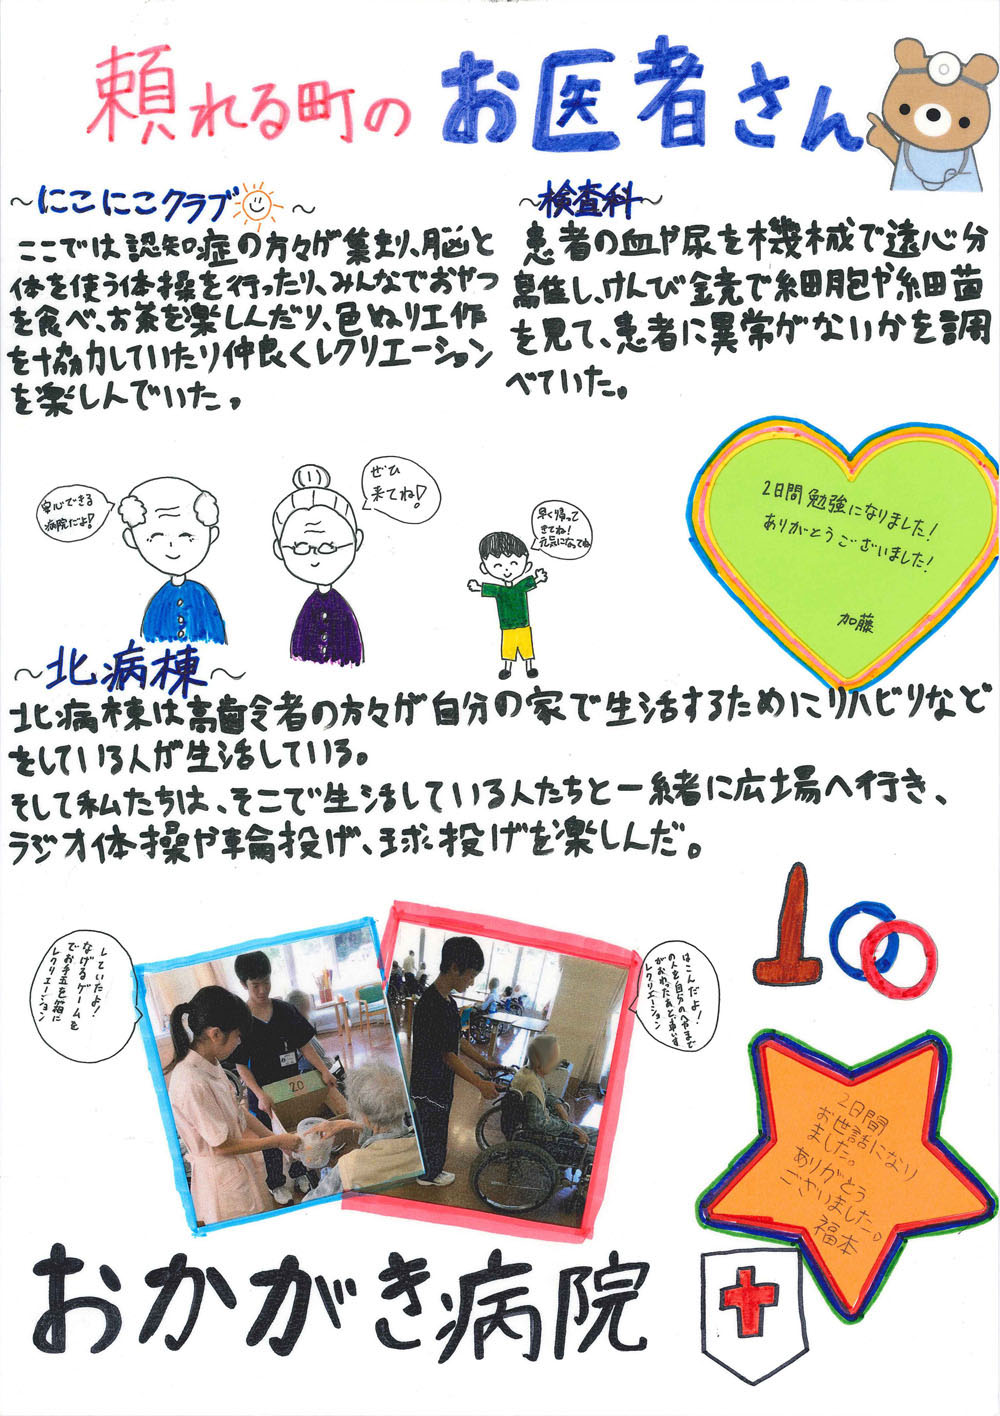 頼れる町のお医者さん
～にこにこクラブ～
ここでは認知症の方々が集まり、脳と
体を使う体操を行ったり、みんなでおやつ
を食べ、お茶を楽しんだり、色ぬり工作
を協力していたり仲良くレクリエーション
を楽しんでいた。
～検査科～
患者の血や尿を機械で遠心分
離し、けんび鏡で細胞や細菌
を見て、患者に異常がないかを調
べていた。
安心できる
病院だよ!
ぜひ
来てね!
早く帰って
きてね!
元気になってね
2日間勉強になりました!
ありがとうございました!
加藤
～北病棟～
北病棟は高齢令者の方々が自分の家で生活するためにリハビリなど
をしている人が生活している。
そして私たちは、そこで生活している人たちと一緒に広場へ行き、
ラジオ体操や輪投げ、球投げを楽しんだ。
レクリエーション
でお手玉を箱に
なげるゲームを
していたよ!
20
レクリエーション
がおわったあと、車いす
の人を自分のへやまで
はこんだよ!
2日間
お世話になり
ました。
ありがとう
ございました。
福本
おかがき病院